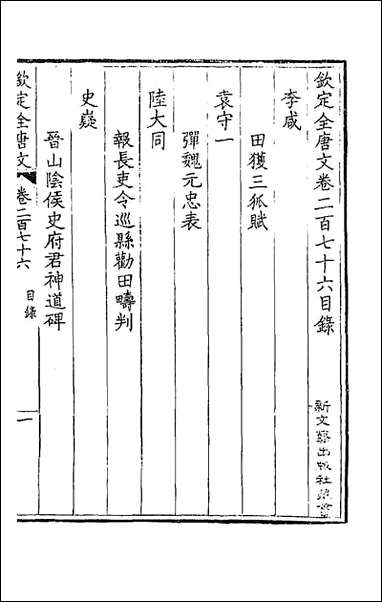 欽定全唐文卷二百七十六目錄
李咸
田獲三狐賦
袁守一
彈魏元忠表
陸大同
報長吏令巡縣勸田疇判
史嶷
晉山陰侯史府君神道碑
欽定全唐文
卷二百七十六
目錄
一
新文豐出版社